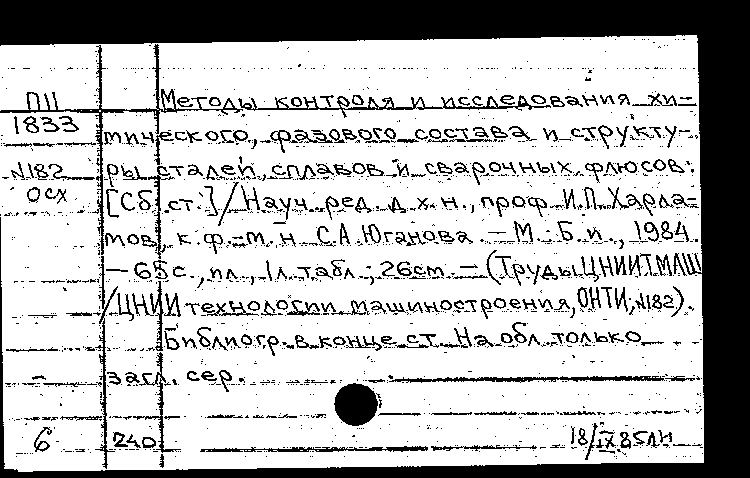 П11 Методы контроля и исследования хи-
1833 мического, фазового состава и структу-
№182 ры сталей, сплавов и сварочных флюсов:
осх [Сб. ст.] / Науч. ред. д.х.н., проф. И.П. Харла-
мов, к.ф.-м.н. С.А. Юганова. – М.: Б.и., 1984.
– 65 с., ил., 1 л. табл.; 26 см. – (Труды ЦНИИТМАШ
/ ЦНИИ технологии машиностроения, ОНТИ, №182).
Библиогр. в конце ст. На обл. только
– загл. сер.
6 240 18/IX 85 ЛН